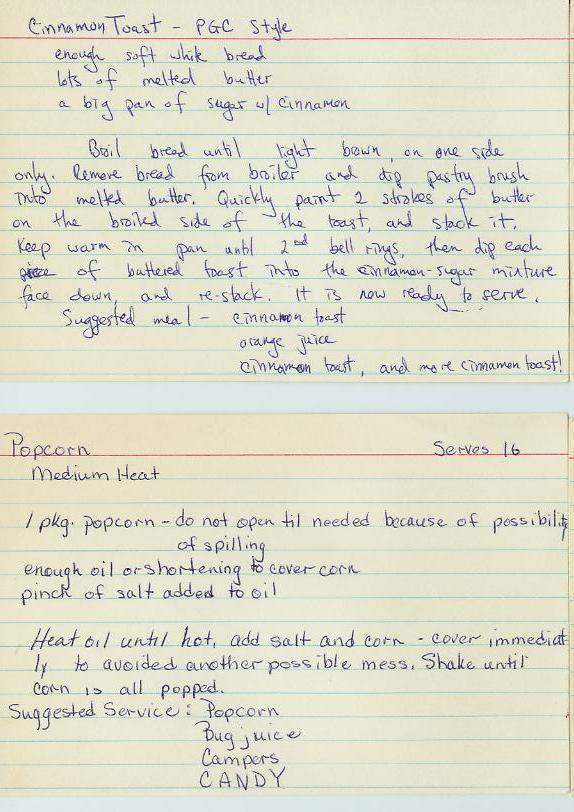 Cinnamon Toast - PGC Style
enough soft white bread
lots of melted butter
a big pan of sugar w/ cinnamon
Broil bread until light brown, on one side
only. Remove bread from broiler and dip pastry brush
into melted butter. Quickly paint 2 strokes of butter
on the broiled side of the toast, and stack it.
Keep warm in pan until 2nd bell rings, then dip each
piece of buttered toast into the cinnamon-sugar mixture
face down, and re-stack. It is now ready to serve.
Suggested meal - cinnamon toast
orange juice
cinnamon toast, and more cinnamon toast!
Popcorn Serves 16
Medium Heat
1 pkg. popcorn - do not open til needed because of possibility
of spilling
enough oil or shortening to cover corn
pinch of salt added to oil
Heat oil until hot, add salt and corn - cover immediat
ly to avoided another possible mess. Shake until
corn is all popped.
Suggested Service: Popcorn
Bug juice
Campers
CANDY